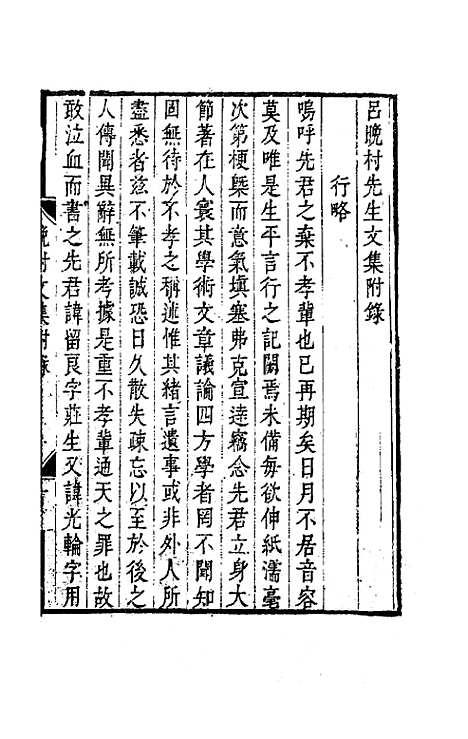 呂晚村先生文集附錄
行略
嗚呼先君之棄不孝輩也已再期矣日月不居音容
莫及唯是生平言行之記闕焉未備每欲伸紙濡毫
次第梗槩而意氣塡塞弗克宣達竊念先君立身大
節著在人寰其學術文章議論四方學者罔不聞知
固無待於不孝之稱述惟其緒言遺事或非外人所
盡悉者茲不筆載誠恐日久散失疎忘以至於後之
人傳聞異辭無所考據是重不孝輩通天之罪也故
敢泣血而書之先君諱留良字莊生又諱光輪字用
晚村文集附錄